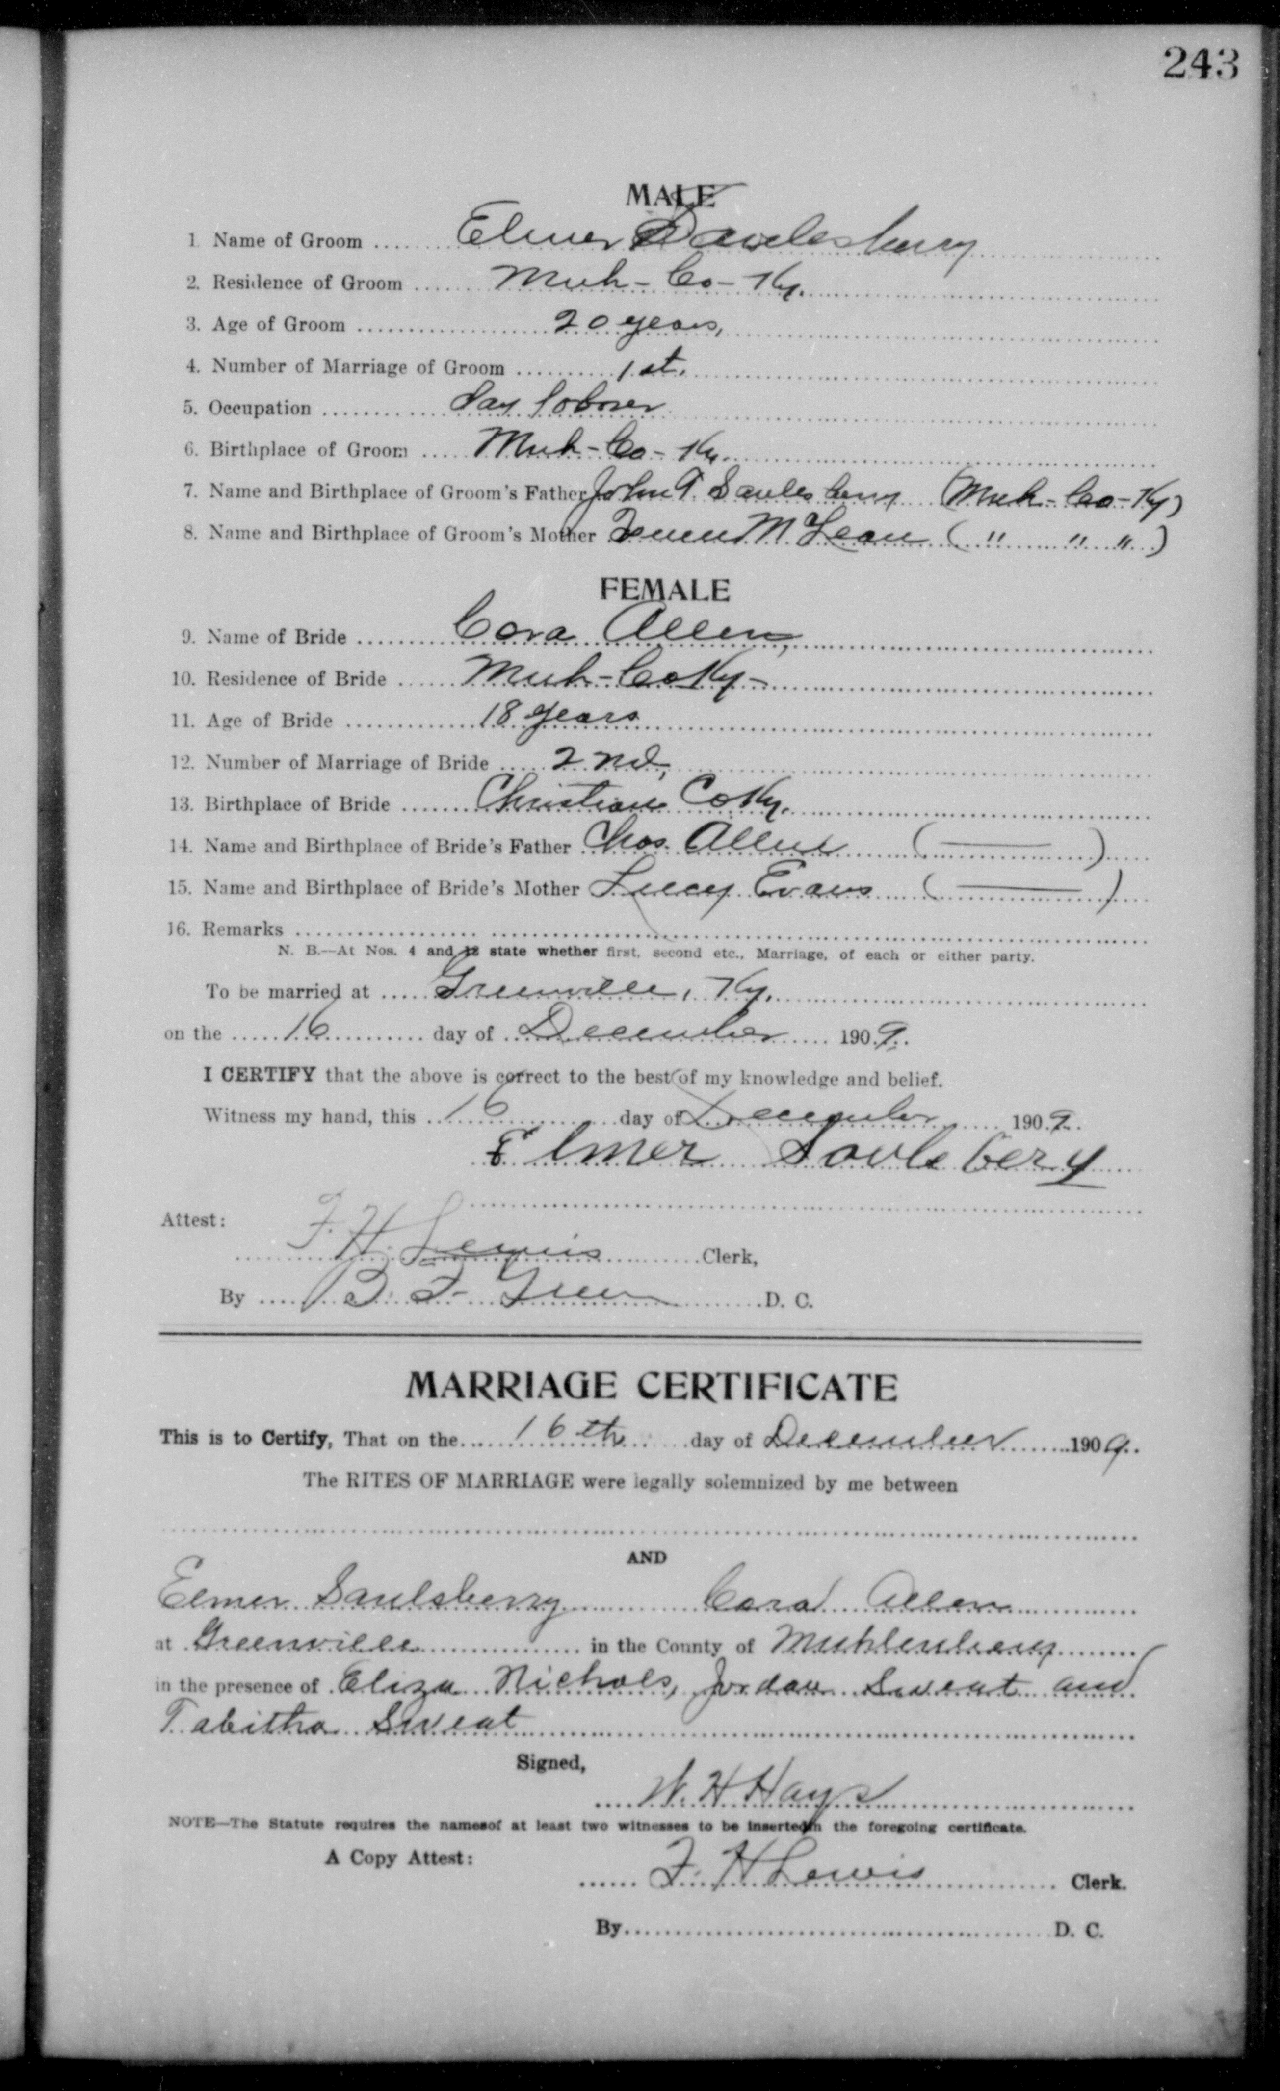 243
MALE
1 Name of Groom Elmer Saulesbury
2. Residence of Groom Muh- Co- Ky.
3. Age of Groom 20 years,
4. Number of Marriage of Groom 1st.
5. Occupation day laborer
6. Birthplace of Groom Muh- Co- Ky.
7. Name and Birthplace of Groom's Father John T. Saulesbery (Muh- Co- Ky)
8. Name and Birthplace of Groom's Mother McLean ( " " " )
FEMALE
9. Name of Bride Cora Allen,
10. Residence of Bride Muh- Co Ky-
11. Age of Bride 18 years
12. Number of Marriage of Bride 2nd,
13. Birthplace of Bride Christian Co Ky.
14. Name and Birthplace of Bride's Father Chas. Allen ( — )
15. Name and Birthplace of Bride's Mother Lucy Evans ( — )
16. Remarks
N. B.—At Nos. 4 and 12 state whether first, second etc., Marriage, of each or either party.
To be married at Greenville, Ky.
on the 16 day of December 1909.
I CERTIFY that the above is correct to the best of my knowledge and belief.
Witness my hand, this 16 day of December 1909.
Elmer Saulsbery
Attest:
F. H. Lewis Clerk,
By B. F. Green D. C.
MARRIAGE CERTIFICATE
This is to Certify, That on the 16th day of December 1909.
The RITES OF MARRIAGE were legally solemnized by me between
AND
Elmer Saulsberry Cora Allen
at Greenville in the County of Muhlenberg
in the presence of Eliza Nichols, Jordan Sweat and
Tabitha Sweat
Signed,
W. H Hays
NOTE—The Statute requires the namesof at least two witnesses to be insertedin the foregoing certificate.
A Copy Attest:
F. H Lewis Clerk.
By D. C.